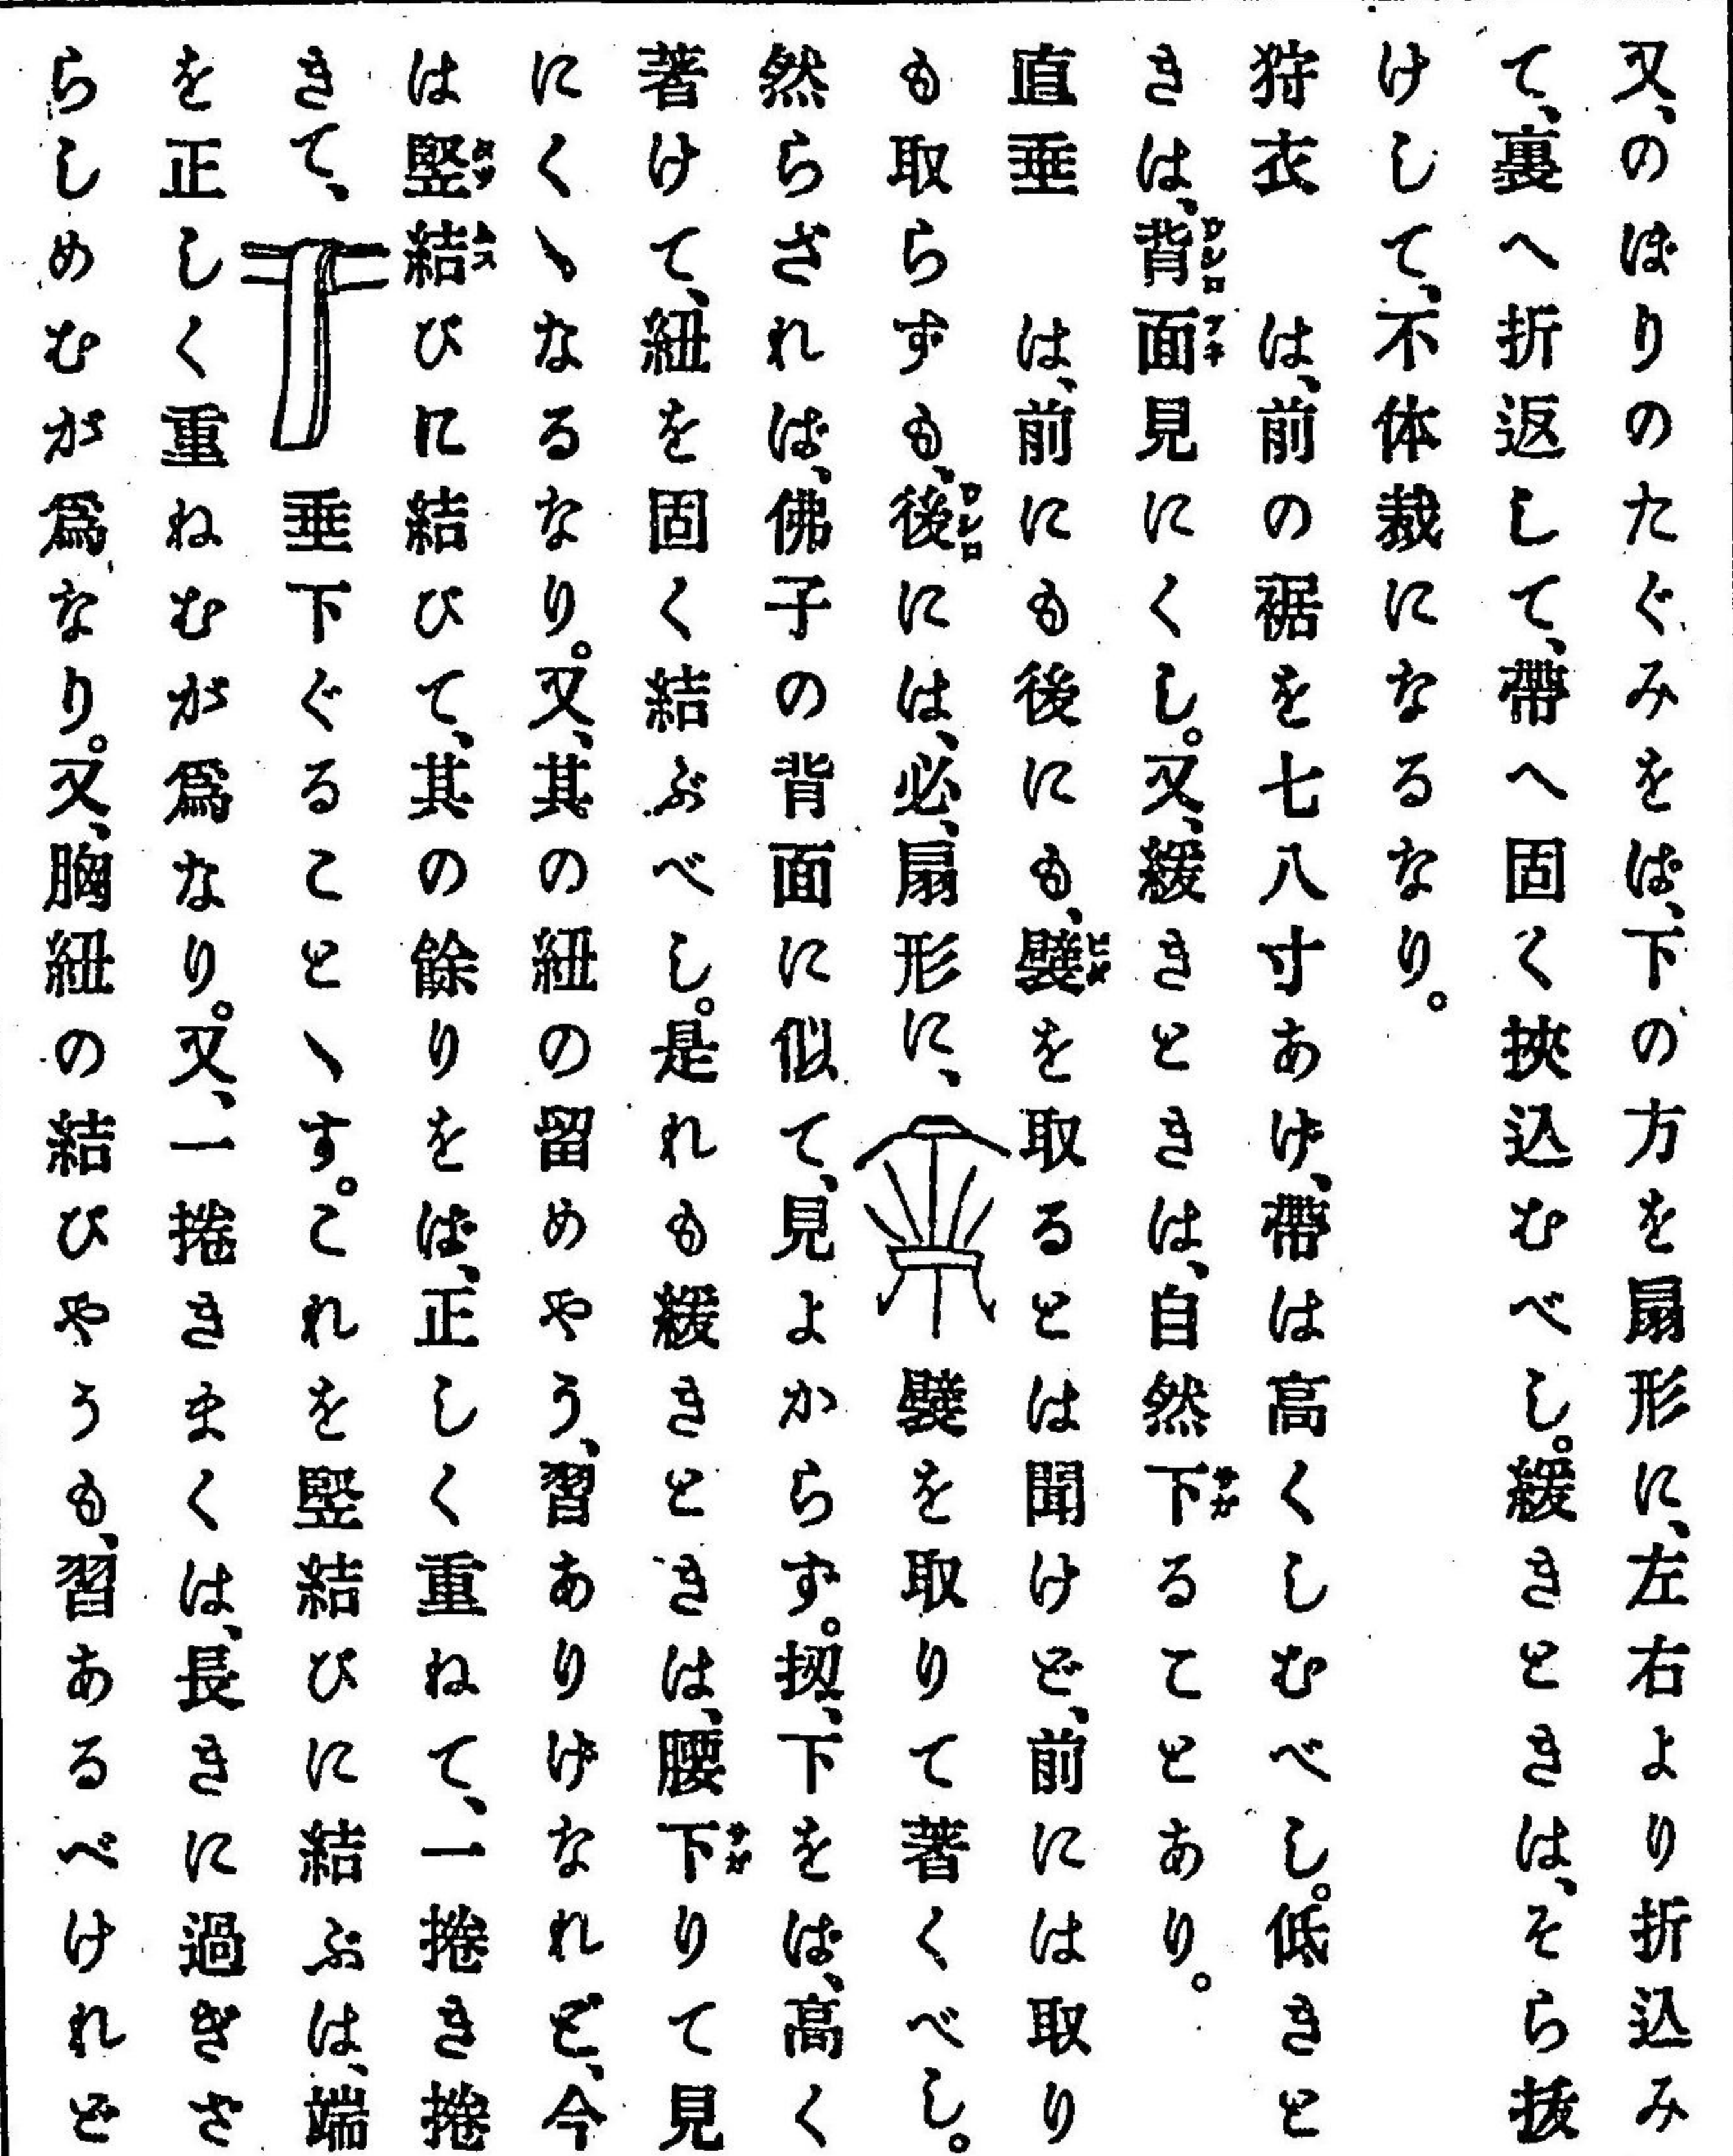 又、のぼりのたぐみをば、下の方を扇形に、左右より折込み
て、裏へ折返して、帶へ固く挾込むべし。緩きときは、そら拔
けして、不体裁になるなり。
狩衣　は、前の裾を七八寸あげ、帶は高くしむべし。低きと
きは、背面見にくし。又、緩きときは、自然下ることあり。
直垂　は、前にも後にも、襞を取るとは聞けど、前には取り
も取らずも、後には、必、扇形に、襞を取りて著くべし。
然らざれば、佛子の背面に似て、見よからず。扨、下をば、高く
著けて、紐を固く結ぶべし。是れも緩きときは、腰下りて見
にくゝなるなり。又、其の紐の留めやう、習ありげなれど、今
は竪結びに結びて、其の餘りをば、正しく重ねて、一捲き捲
きて、垂下ぐることゝす。これを竪結びに結ぶは、端
を正しく重ねむが爲なり。又、一捲きまくは、長きに過ぎさ
らしめむが爲なり。又、胸紐の結びやうも、習あるべけれど